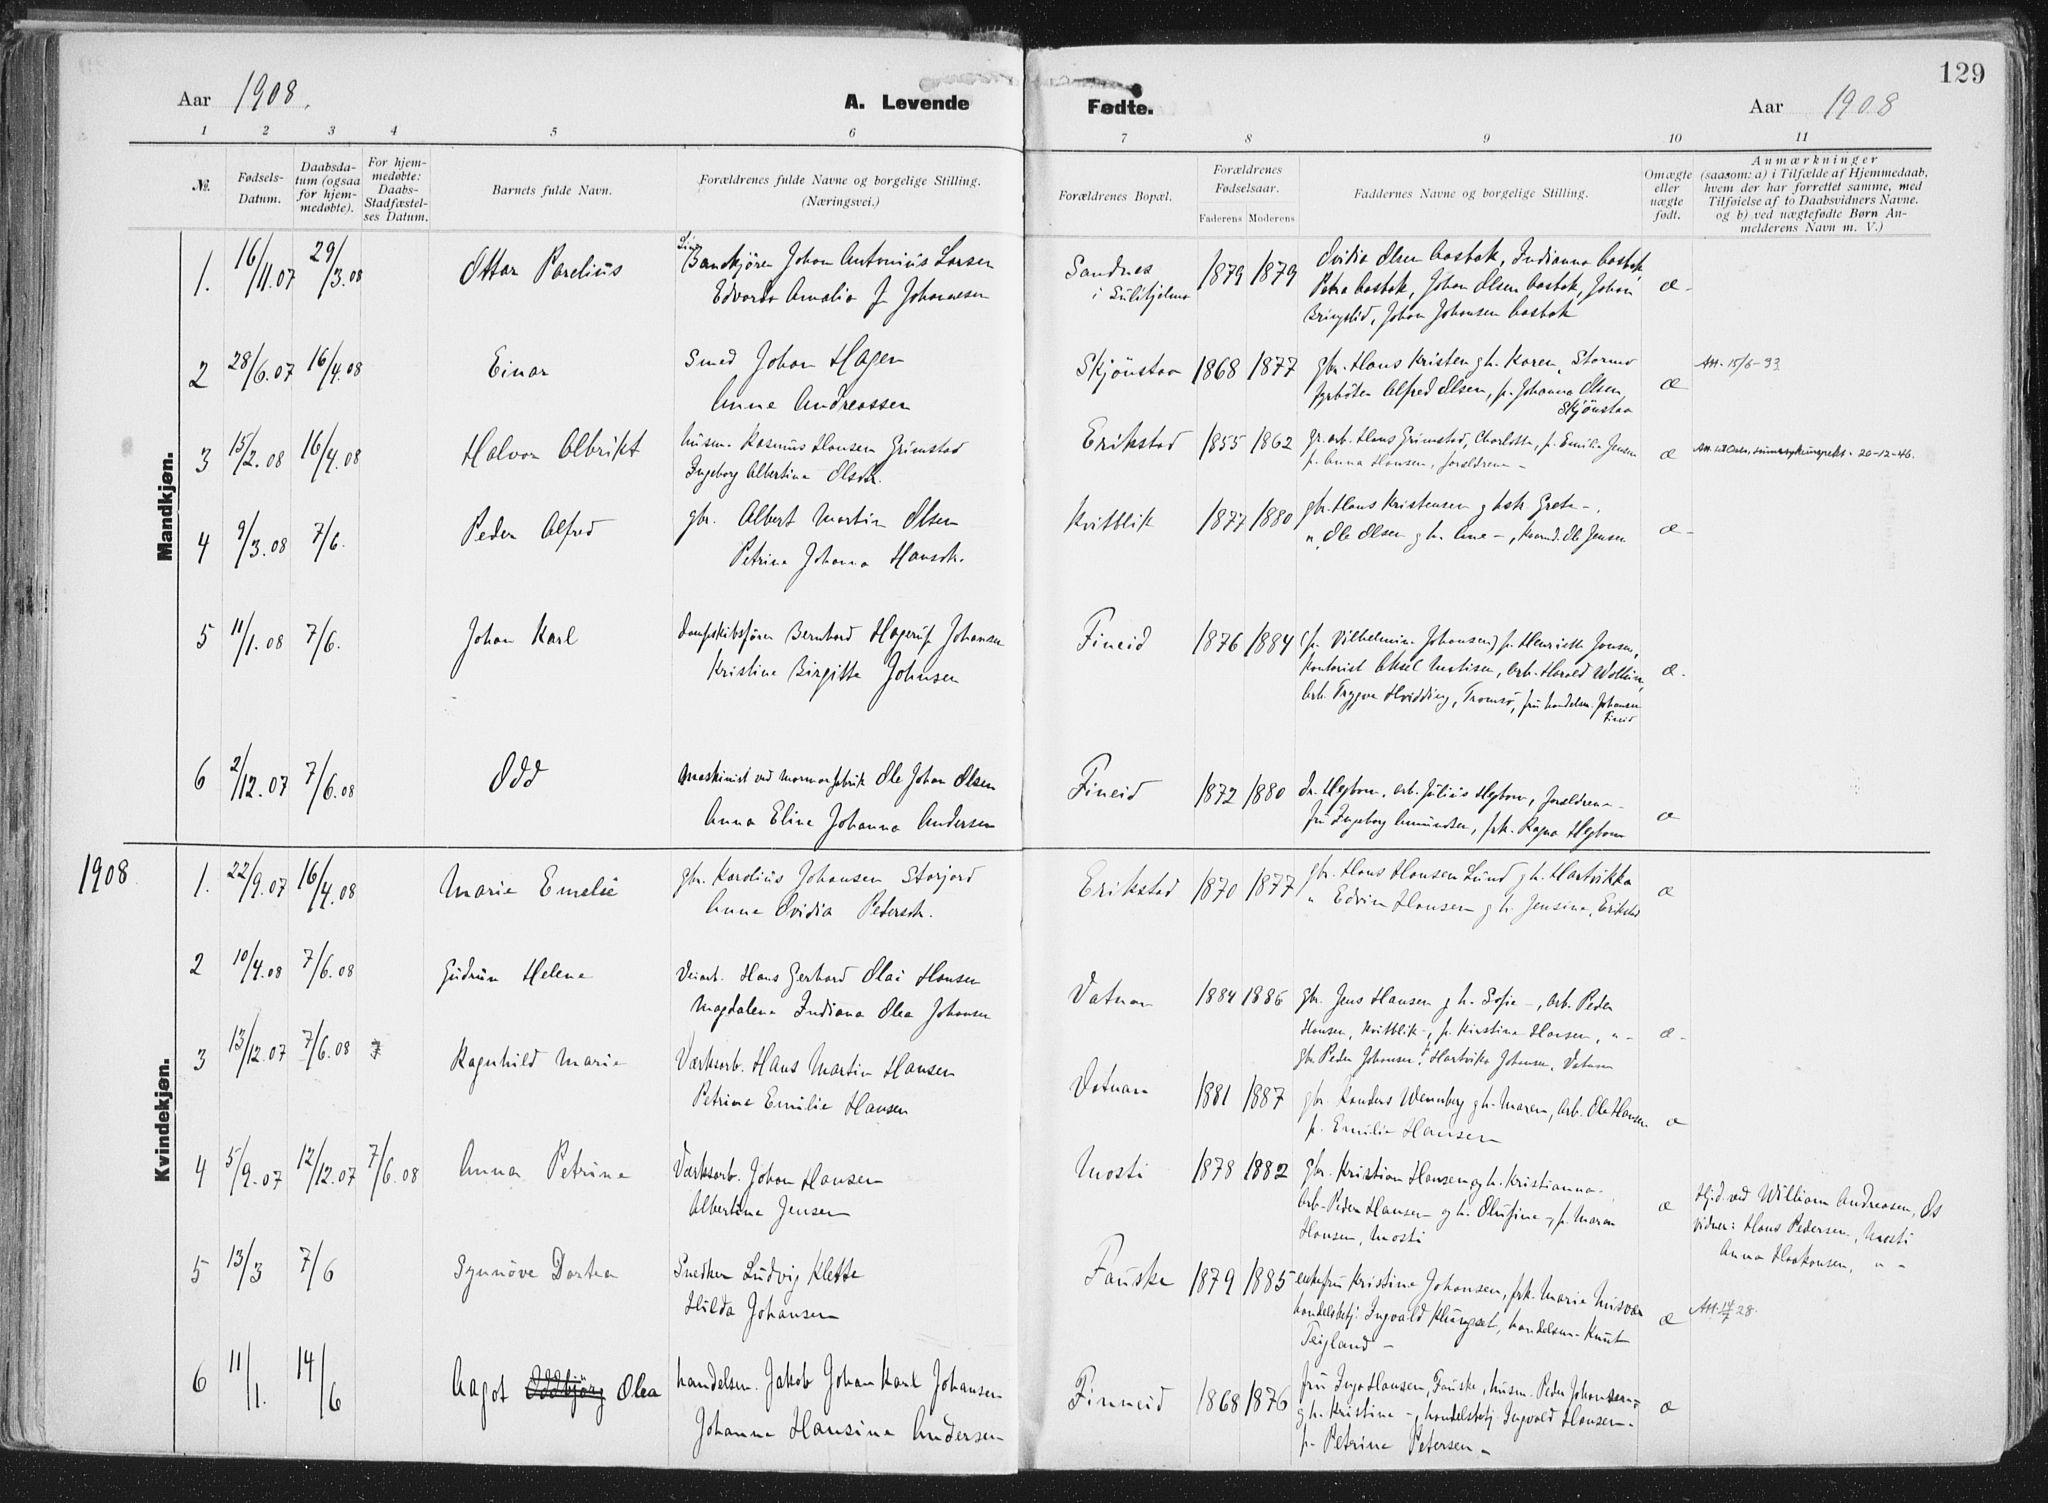 129
Aar 1908. A. Levende Fødte. Aar 1908
1 2 3 4 5 6 7 8 9 10 11
№.
Fødsels-
Datum.
Daabsda-
tum (ogsaa
for hjem-
medøbte).
For hjem-
medøbte:
Daabs-
Stadfæstel-
ses Datum.
Barnets fulde Navn.
Forældrenes fulde Navne og borgelige Stilling.
(Næringsvei.)
Forældrenes Bopæl.
Forældrenes
Fødselsaar.
Faderens Moderens
Faddernes Navne og borgelige Stilling.
Omægte
eller
nægte
født.
Anmærkninger
(saasom: a) i Tilfælde af Hjemmedaab,
hvem der har forrettet samme, med
Tilføielse af to Daabsvidners Navne.
og b) ved nægtefødte Børn An-
melderens Navn m. V.)
Mandkjøn.
1. 16/11.07 29/3.08 Ottar Parelius
Johan Antonius Larsen
Edvarda Amalia f. Johannesen
Sandnes
i Sulitjelma
1879 1879
Ovidia Olsen Aasbak, Indianna Aasbak,
Petra Aasbak, Johan Olsen Aasbak, Johan
Bringslid, Johan Johansen Aasbak
æ-
2 28/6.07 16/4.08 Einar
Smed Johan Hagen
Anne Andreassen
Skjönstaa 1868 1877
gbr. Hans Kristen g h. Karen, Stormo
fyrböter Alfred Olsen, p. Johanna Olsen,
Skjönstaa
æ
Att. 15/6-33
3 15/2.08 16/4.08 Halvor Albrikt
husm. Rasmus Hansen Grimstad
Ingeborg Albertine Olsdtr.
Erikstad 1855 1862
gr. arb. Hans Grimstad, Charlotte, p. Emilie Jensen
p. Anna Hansen, forældrene -
æ
20-12-46.
4 9/3.08 7/6. Peder Alfred
gbr. Albert Martin Olsen
Petrine Johanna Hansdtr.
Kvitblik 1877 1880
gbr. Hans Kristensen g hstr Grete -.
" Ole Olsen g h. Ane -, Ole Jensen
æ-
5 11/1.08 7/6. Johan Karl
Dampskibsfører Bernhard Hagerup Johansen
Kristine Birgitte Johnsen
Fineid 1876 1884
(p. Vilhelmine Johansen) p. Henriette Jensen,
Kontorist Aksel Matisen, arb. Harald
Arb. Trygve Hvidding, Tromsö, fru handelsm. Johansen
Fineid
æ-
6 2/12.07 7/6.08 Odd
Maskinist ved marmorfabrik Ole Johan Olsen
Anna Eline Johanna Andersen
Fineid 1872 1880
arb. Julius Hegbom, forældrene -
fru Ingeborg Amundsen, frk. Ragna Hegbom
æ
1908
Kvindekjøn.
1. 22/9.07 16/4.08 Marie Emelie
gbr. Karolius Johansen Storjord
Anne Ovidia Pedersdtr.
Erikstad 1870 1877
gbr. Hans Hansen Lund g h. Hartvikka
" Edvin Hansen g h. Jensine, Erikstad
æ
2 10/4.08 7/6.08 Gudrun Helene
Veiarb. Hans Gerhard Olai Hansen
Magdalena Indiana Olea Johansen
Vatnan 1884 1886
gbr. Jens Hansen g h. Sofie -, arb. Peder
Hansen, Kvitblik -, p. Kirstine Hansen, " -
gbr Peder Johansen, Hartvika Johansen, Vatnan
æ-
3 13/12.07 7/6.08 Ragnhild Marie
Værksarb. Hans Martin Hansen
Petrine Emilie Hansen
Vatnan 1881 1887
gbr. Randers Wennberg g h. Maren, arb. Ole Hansen
p. Emilie Hansen
æ
4 5/9.07 12/12.07 7/6.08 Anna Petrine
Værksarb. Johan Hansen
Albertine Jensen
Mosti 1878 1882
gbr. Kristian Hansen og h. Kristianna -.
Arb. Peder Hansen og h. Olufine -, p. Maren
Hansen, Mosti
æ
Hjd. ved William Andreasen, Os
Vidner: Hans Pedersen, Mosti
Anna Haakonsen, " -
5 13/3 7/6 Synnöve Dortea
Snedker Ludvig Klette
Hilda Johansen
Fauske 1879 1885
enkefru Kristine Johansen, frk. Marie Misvær
handelsbetj. Ingvald Klungset, handelsm. Knut
Teigland -
æ
Att. 14/7 28.
6 11/1. 14/6 Aagot Oddbjörg Olea
handelsm. Jakob Johan Karl Johansen
Johanna Hansine Andersen
Finneid 1868 1876
fru Inga Hansen, Fauske, husm. Peder Johansen
g h. Kristine -, handelsbetj. Ingvald Hansen -
p. Petrine Petersen -
æ